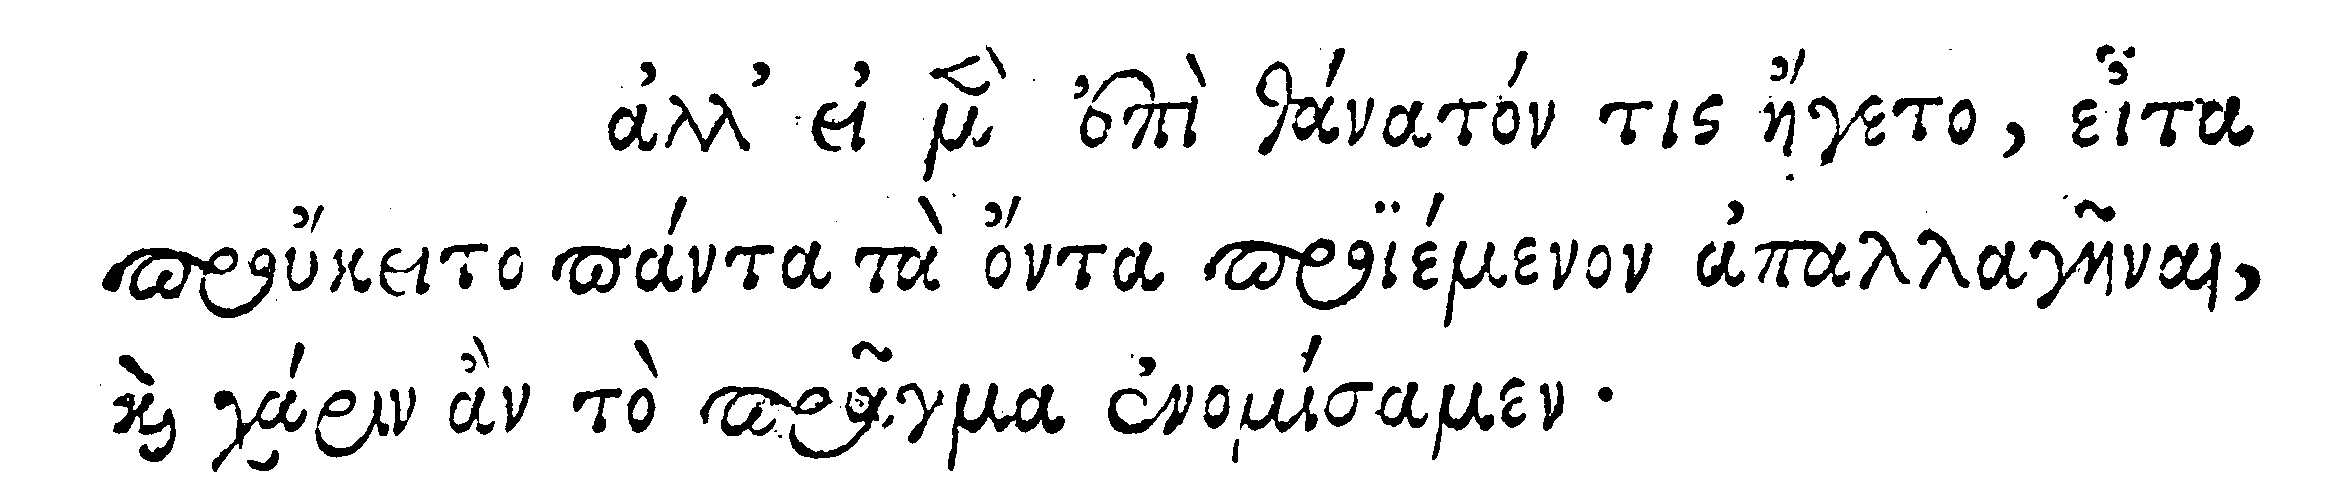 ἀλλ' εἰ μὲν ἐπὶ θάνατόν τις ἤγετο, εἶτα
προὔκειτο πάντα τὰ ὄντα προϊέμενον ἀπαλλαγῆναι,
καὶ χάριν ἂν τὸ πρᾶγμα ἐνομίσαμεν·